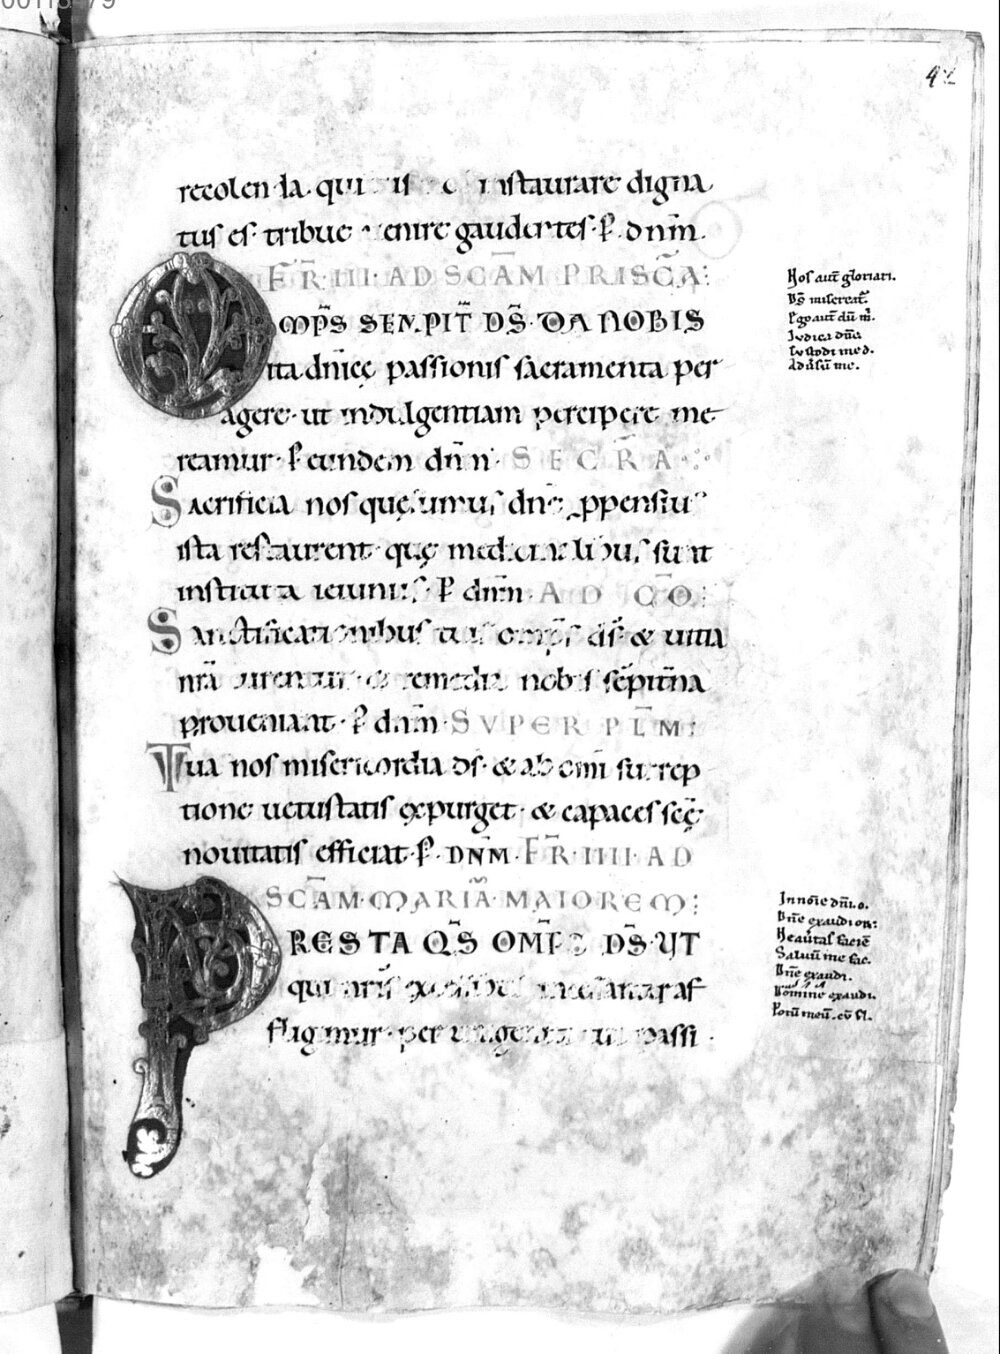 42
recolenda qui instaurare digna
tus es· tribue uenire gaudentes· ꝑ dnm̄.
FR̄· III· AD SCĀM PRISCĀ:
OMP̄S SENPIT̄ DS̄· DA NOBIS
ita dnīcę passionis sacramenta per
agere· ut indulgentiam percipere me
reamur· ꝑ eundem dn̄m· SECR̄A
Sacrificia nos quęsumus dnē ꝓpensiu᷒
ista restaurent· quę medicinalibus sunt
instituta ieiuniis· ꝑ dnm̄· AD CŌ:
Sanctificationibus tuis omp̄s ds̄· & uitia
nrā curentur· & remedia nobis sēpitn̄a
proueniant· ꝑ dnm̄· SVPER PL̄M:
Tua nos misericordia ds̄· & ab omni surrep
tione uetustatis expurget· & capaces scę̄
nouitatis efficiat· ꝑ· DNM̄· FR̄· IIII· AD
SCĀM· MARIĀ MAIOREM:
PRESTA QS̄ OMP̄S DS̄· UT
qui nr̄is excessibus incessanter af
fligimur· per unigeniti tui passi·
Nos aut̄ gloriari.
Ds̄ misereat̄.
Ego aut̄ dū m̄.
Iudica dn̄e
Custodi me d.
Ad dn̄m me.
In noīe dn̄i. o.
Dn̄e exaudi or̄:
Ne au̅tas faciē
Saluū me fac.
Dn̄e exaudi.
Domine exaudi.
Potū meū. cū fl.